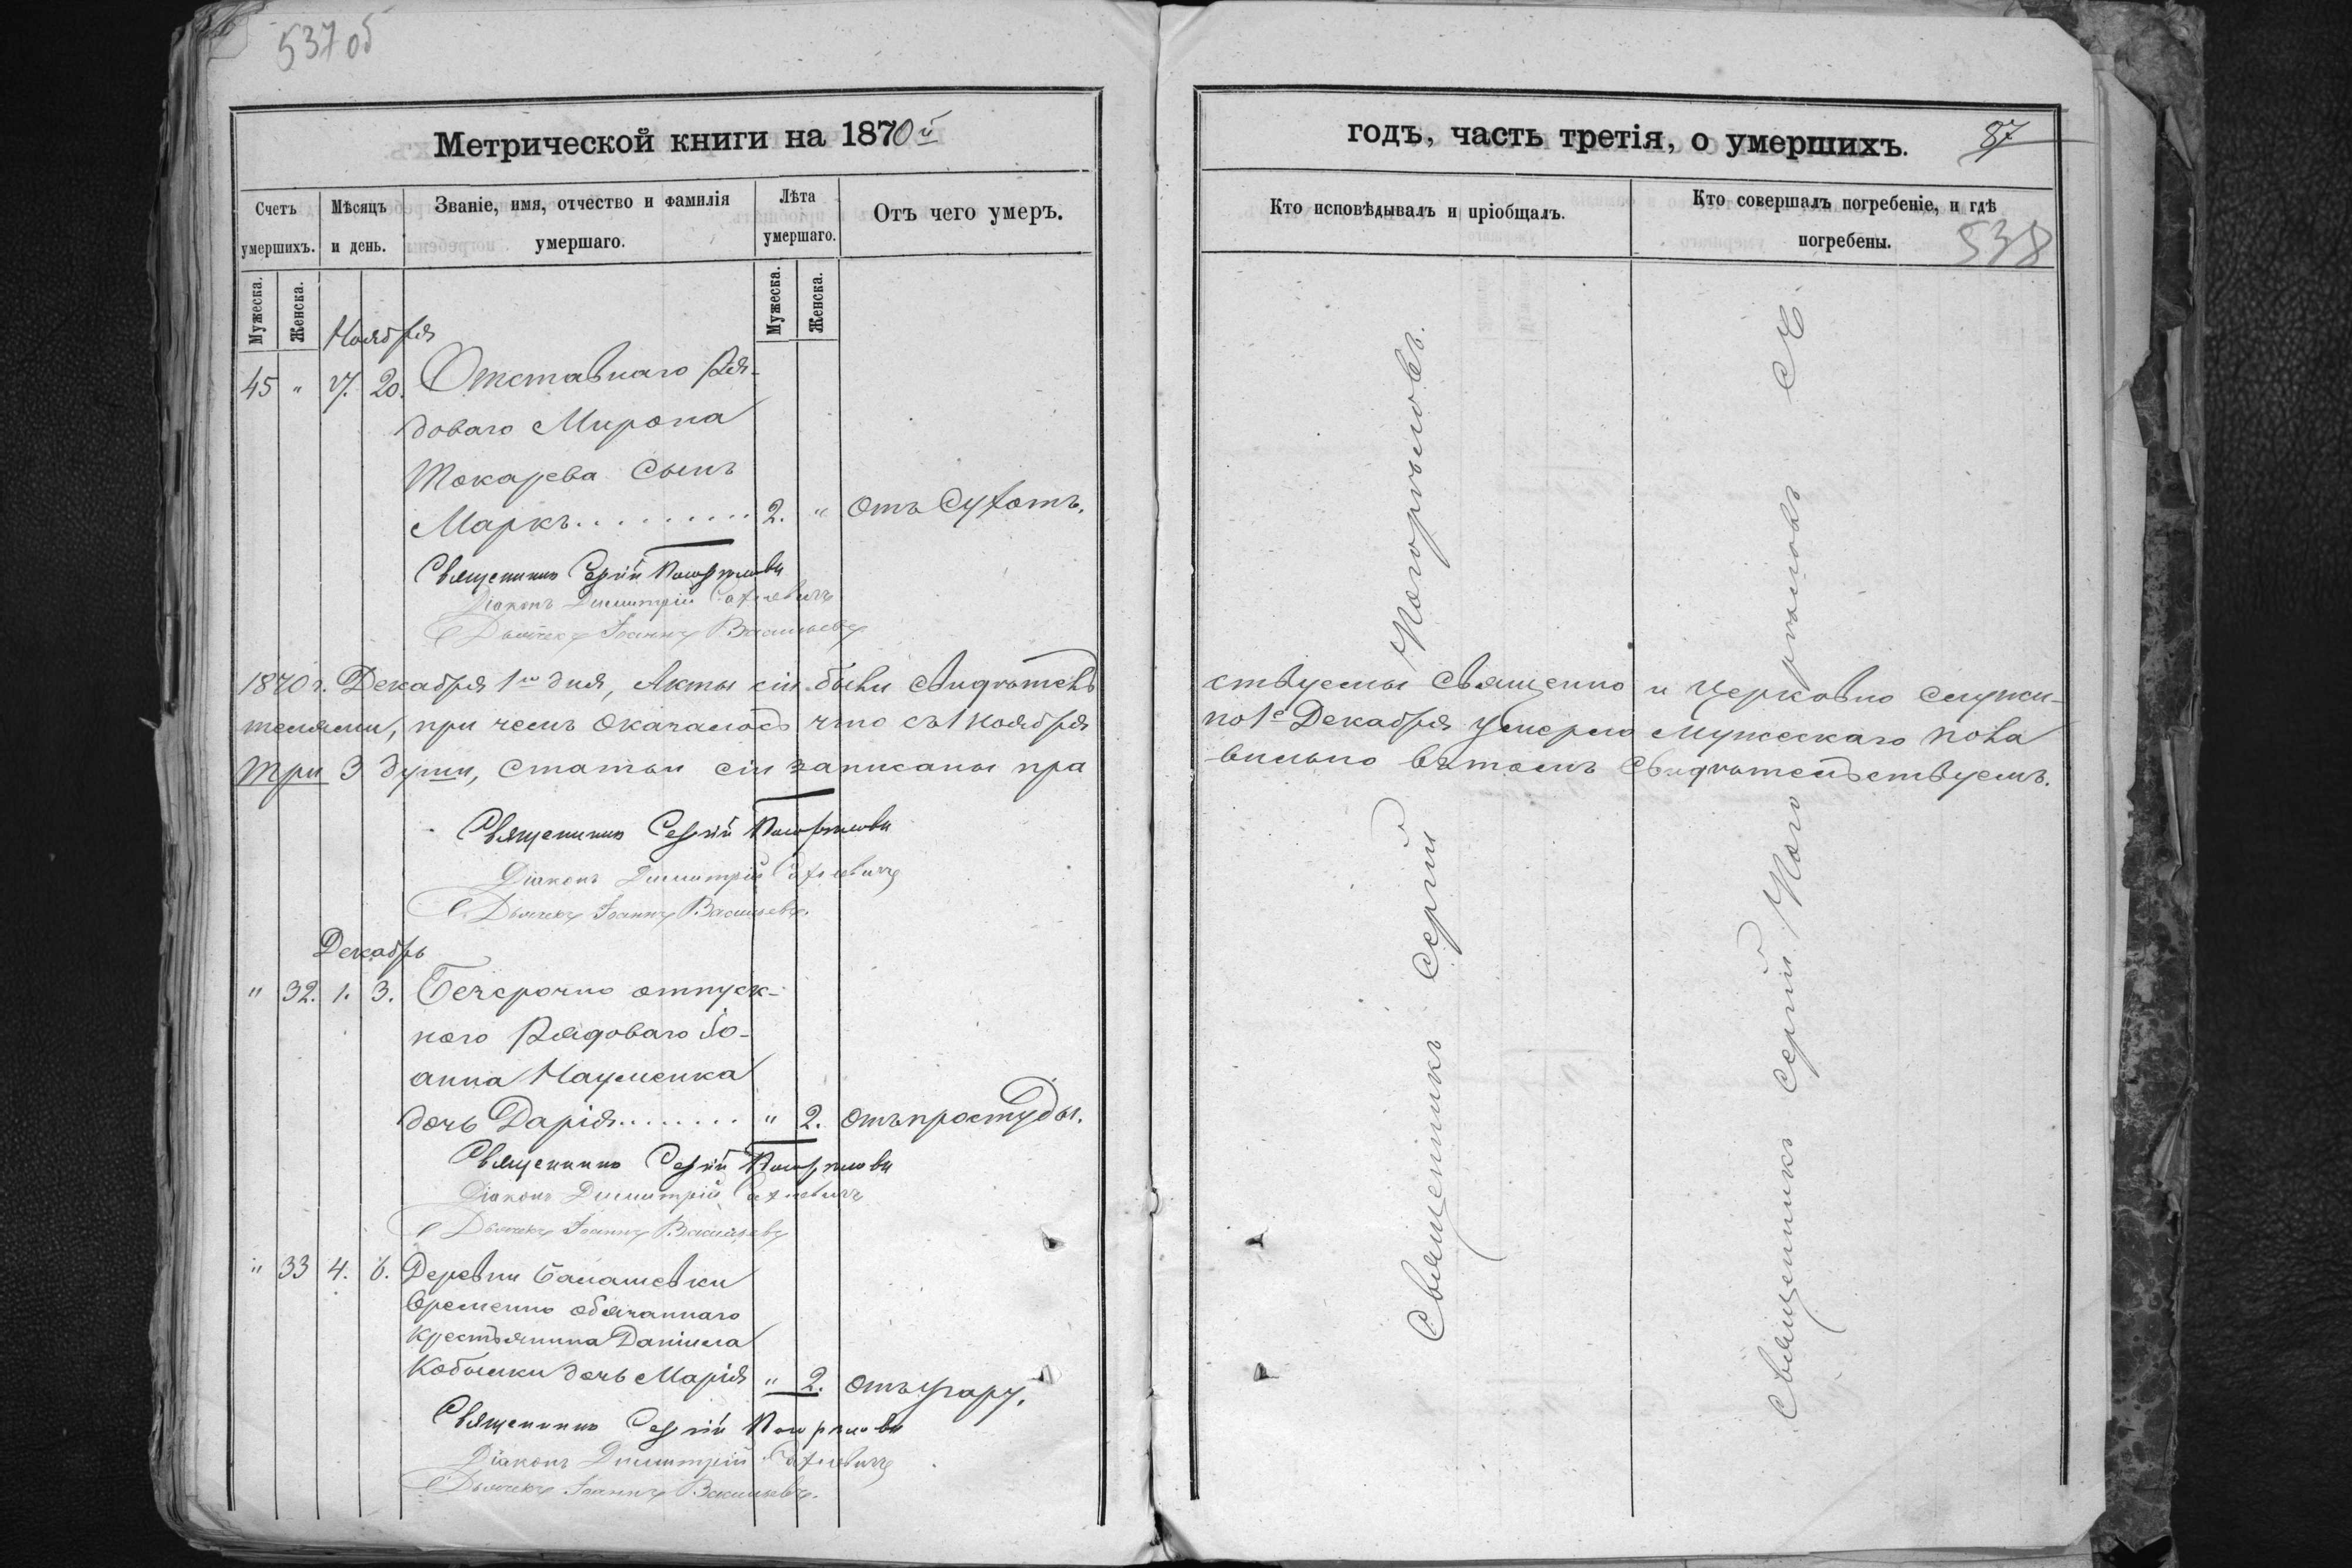 537 об
Метрической книги на 1870й
Счетъ умершихъ.
Мѣсяцъ и день.
Званіе, имя, отчество и фамилія умершаго.
Лѣта умершаго.
Отъ чего умеръ.
Мужеска.
Женска.
Мужеска.
Женска.
Ноября
45 " 17. 20. Отставнаго Ря-
доваго Мирона
Токарева Сынъ
Маркъ.......... 2. " Отъ Сухотъ.
Священникъ Сергій
Діаконъ Димитрій
Дьячекъ Іоаннъ Васильевъ
1870 г. Декабря 1го дня, Акты сіи были свидѣтель
телями, при чемъ оказалось что съ 1 ноября
Три 3 души, Статьи сіи записаны пра
Священникъ Сергій
Діаконъ Димитрій
Дьячекъ Іоаннъ Васильевъ.
Декабрь
" 32. 1. 3. Безсрочно отпуск-
ного Рядоваго Іо-
анна Науменка
дочь Дарія........ " 2. Отъ простуды.
Священникъ Сергій
Діаконъ Димитрій
Дьячекъ Іоаннъ Васильевъ
" 33 4. 6. Деревни Балашевки
Временно обязаннаго
Крестьянина Даніила
Кобылки дочь Марія " 2. Отъ угару.
Священникъ Сергій
Діаконъ Димитрій
Дьячекъ Іоаннъ Васильевъ.
годъ, часть третія, о умершихъ.
87
Кто исповѣдывалъ и пріобщалъ.
Кто совершалъ погребеніе, и гдѣ погребены.
538
ствуемы Священно и Церковно служи-
по 1е Декабря умерло мужескаго пола
вильно въ томъ Свидѣтельствуемъ.
Священникъ Сергій Погорѣловъ.
Священникъ Сергій Погорѣловъ